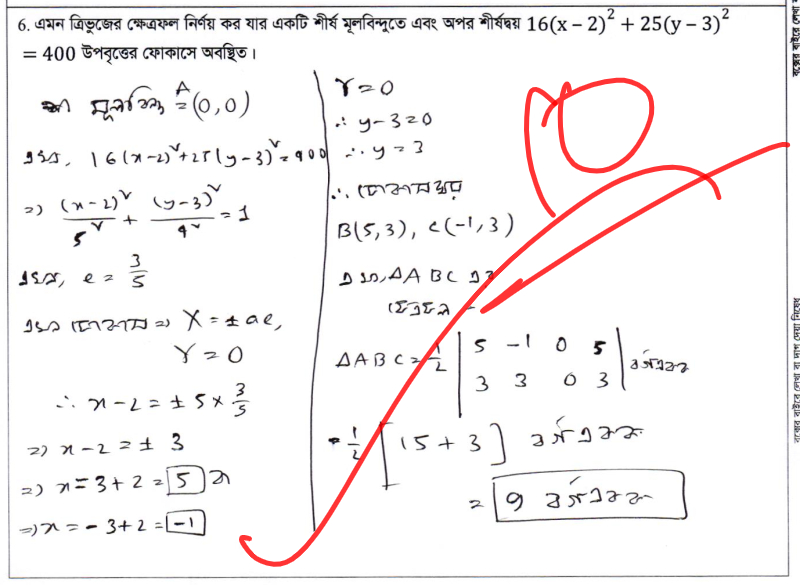 6. এমন ত্রিভুজের ক্ষেত্রফল নির্ণয় কর যার একটি শীর্ষ মূলবিন্দুতে এবং অপর শীর্ষদ্বয় 16(x – 2)² + 25(y – 3)²
= 400 উপবৃত্তের ফোকাসে অবস্থিত।
মূলবিন্দু A = (0,0)
এখন, 16(x-2)² + 25(y-3)² = 400
⇒ (x-2)²/5² + (y-3)²/4² = 1
এখন, e = 3/5
এখন ফোকাস ⇒ X = ± ae,
Y = 0
∴ x-2 = ± 5 × 3/5
⇒ x-2 = ± 3
⇒ x = 3+2 = 5
⇒ x = -3+2 = -1
Y = 0
∴ y-3=0
∴ y = 3
∴ ফোকাসদ্বয়
B(5,3), C(-1,3)
এখন, ΔABC এর
ক্ষেত্রফল =
ΔABC = 1/2 | 5 -1 0 5 | বর্গএকক
3 3 0 3
= 1/2 [15 + 3] বর্গএকক
= 9 বর্গএকক
10
বক্সের বাইরে লেখা বা দাগ দেয়া নিষেধ